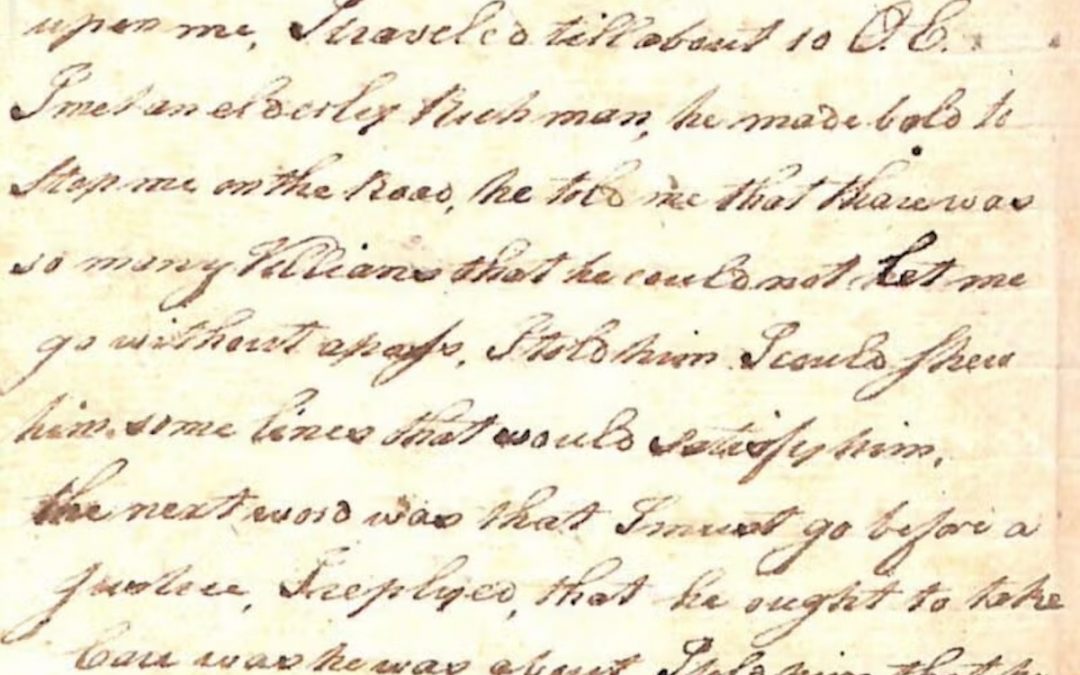 upon me, I traveled till about 10 O.C.
I met an elderley Rich man, he made bold to
stop me on the Road, he told me that thare was
so many Villians that he could not let me
go without a pass, I told him I could shew
him some lines that would satisfy him,
the next word was that I must go before a
justice, I replyed, that he ought to take
Care was he was about I told him that he